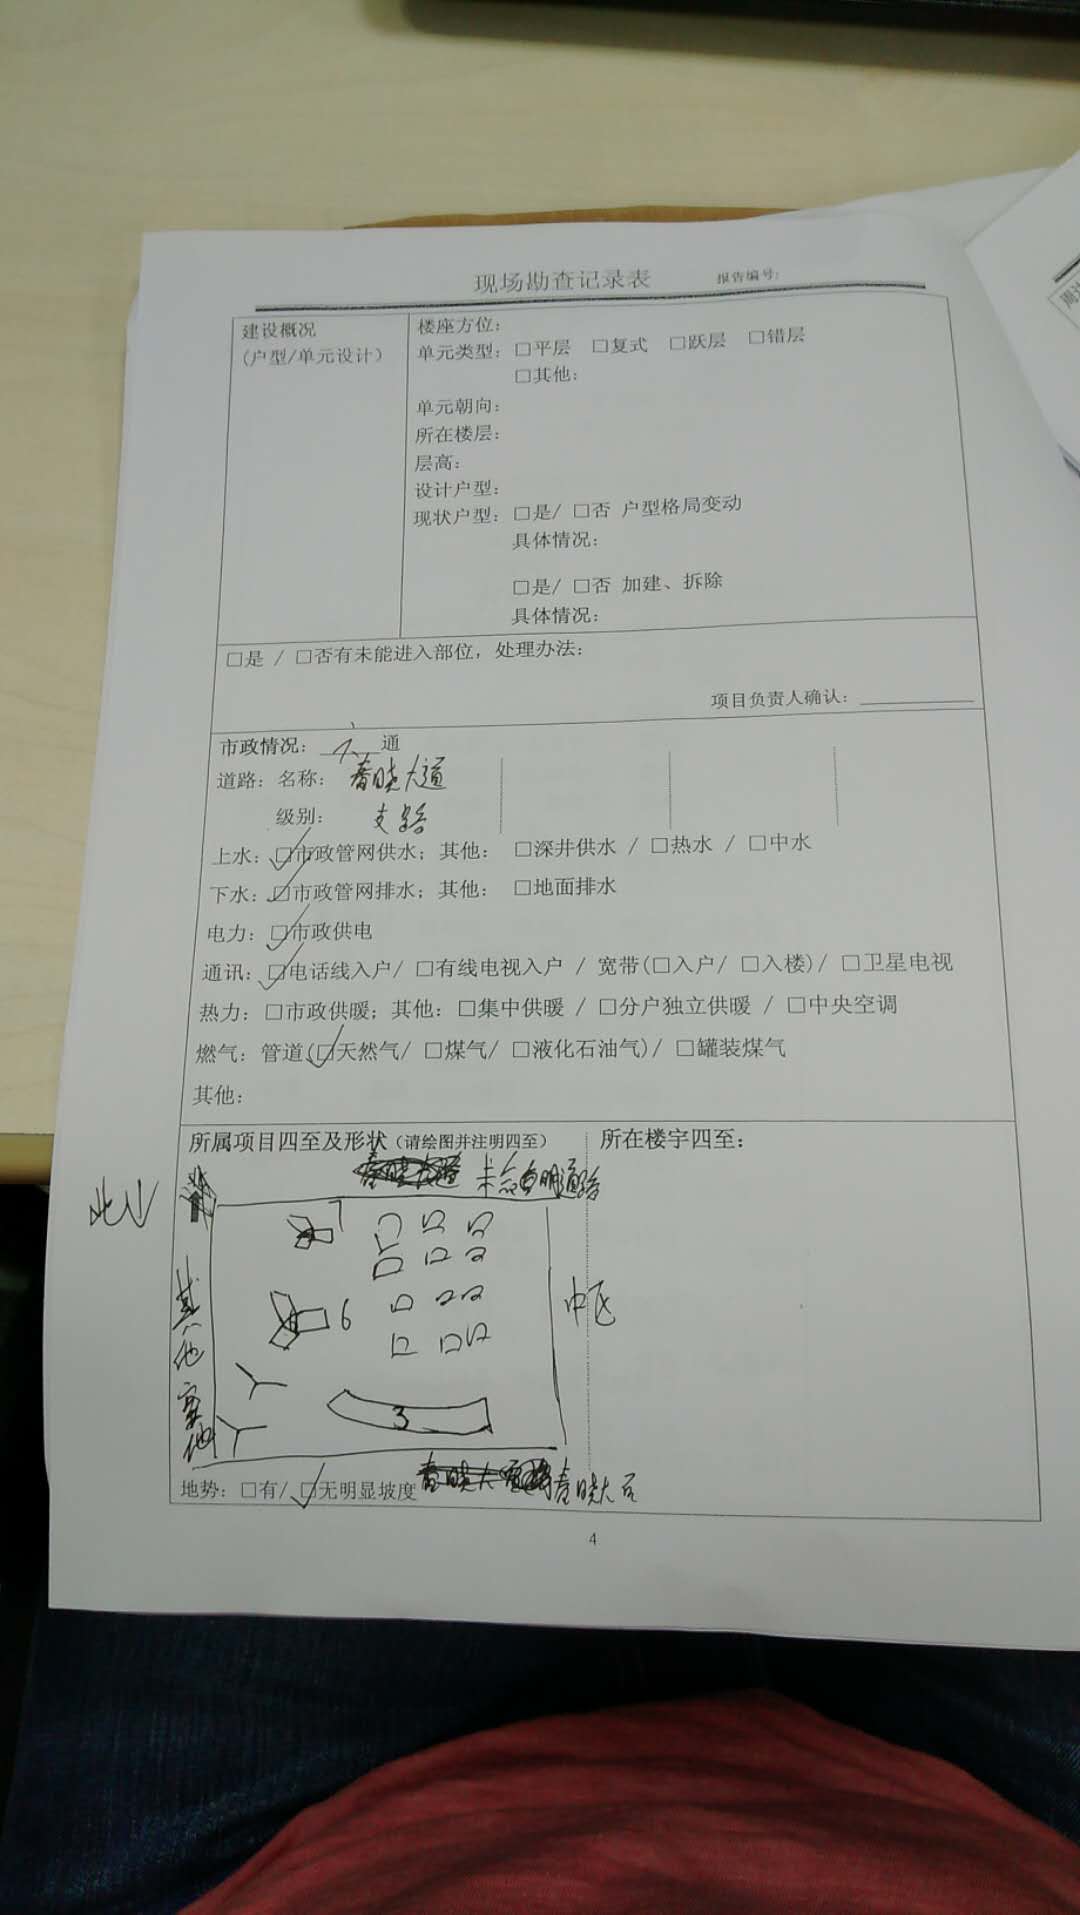 现场勘查记录表 报告编号:
建设概况
(户型/单元设计)
楼座方位:
单元类型: □平层 □复式 □跃层 □错层
□其他:
单元朝向:
所在楼层:
层高:
设计户型:
现状户型: □是/ □否 户型格局变动
具体情况:
□是/ □否 加建、拆除
具体情况:
□是 / □否有未能进入部位, 处理办法:
项目负责人确认:
市政情况: 六 通
道路: 名称: 春晓大道
级别: 支路
上水: □市政管网供水; 其他: □深井供水 / □热水 / □中水
下水: □市政管网排水; 其他: □地面排水
电力: □市政供电
通讯: □电话线入户/ □有线电视入户 / 宽带(□入户/ □入楼)/ □卫星电视
热力: □市政供暖; 其他: □集中供暖 / □分户独立供暖 / □中央空调
燃气: 管道(□天然气/ □煤气/ □液化石油气)/ □罐装煤气
其他:
所属项目四至及形状(请绘图并注明四至) 所在楼宇四至:
7
6
3
其他
地势: □有/ □无明显坡度
4